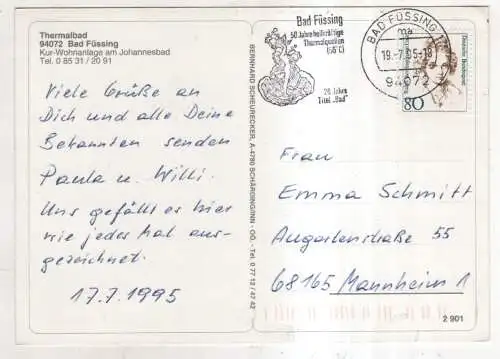 Thermalbad
94072 Bad Füssing
Kur-Wohnanlage am Johannesbad
Tel. 0 85 31 / 20 91
Viele Grüße an
Dich und alle Deine
Bekannten senden
Paula u. Willi.
Uns gefällt es hier
wie jedes Mal aus-
gezeichnet.
17.7.1995
BERNHARD SCHEURECKER, A-4780 SCHÄRDING/INN - OÖ. - TEL. 0 77 12 / 47 42
Bad Füssing
50 Jahre heilkräftige
Thermalquellen
(56°C)
20 Jahre
Titel „Bad“
BAD FÜSSING 1
ma
19.-7.95-18
94072
Deutsche Bundespost
80
Frau
Emma Schmitt
Augartenstraße 55
68165 Mannheim 1
2 901